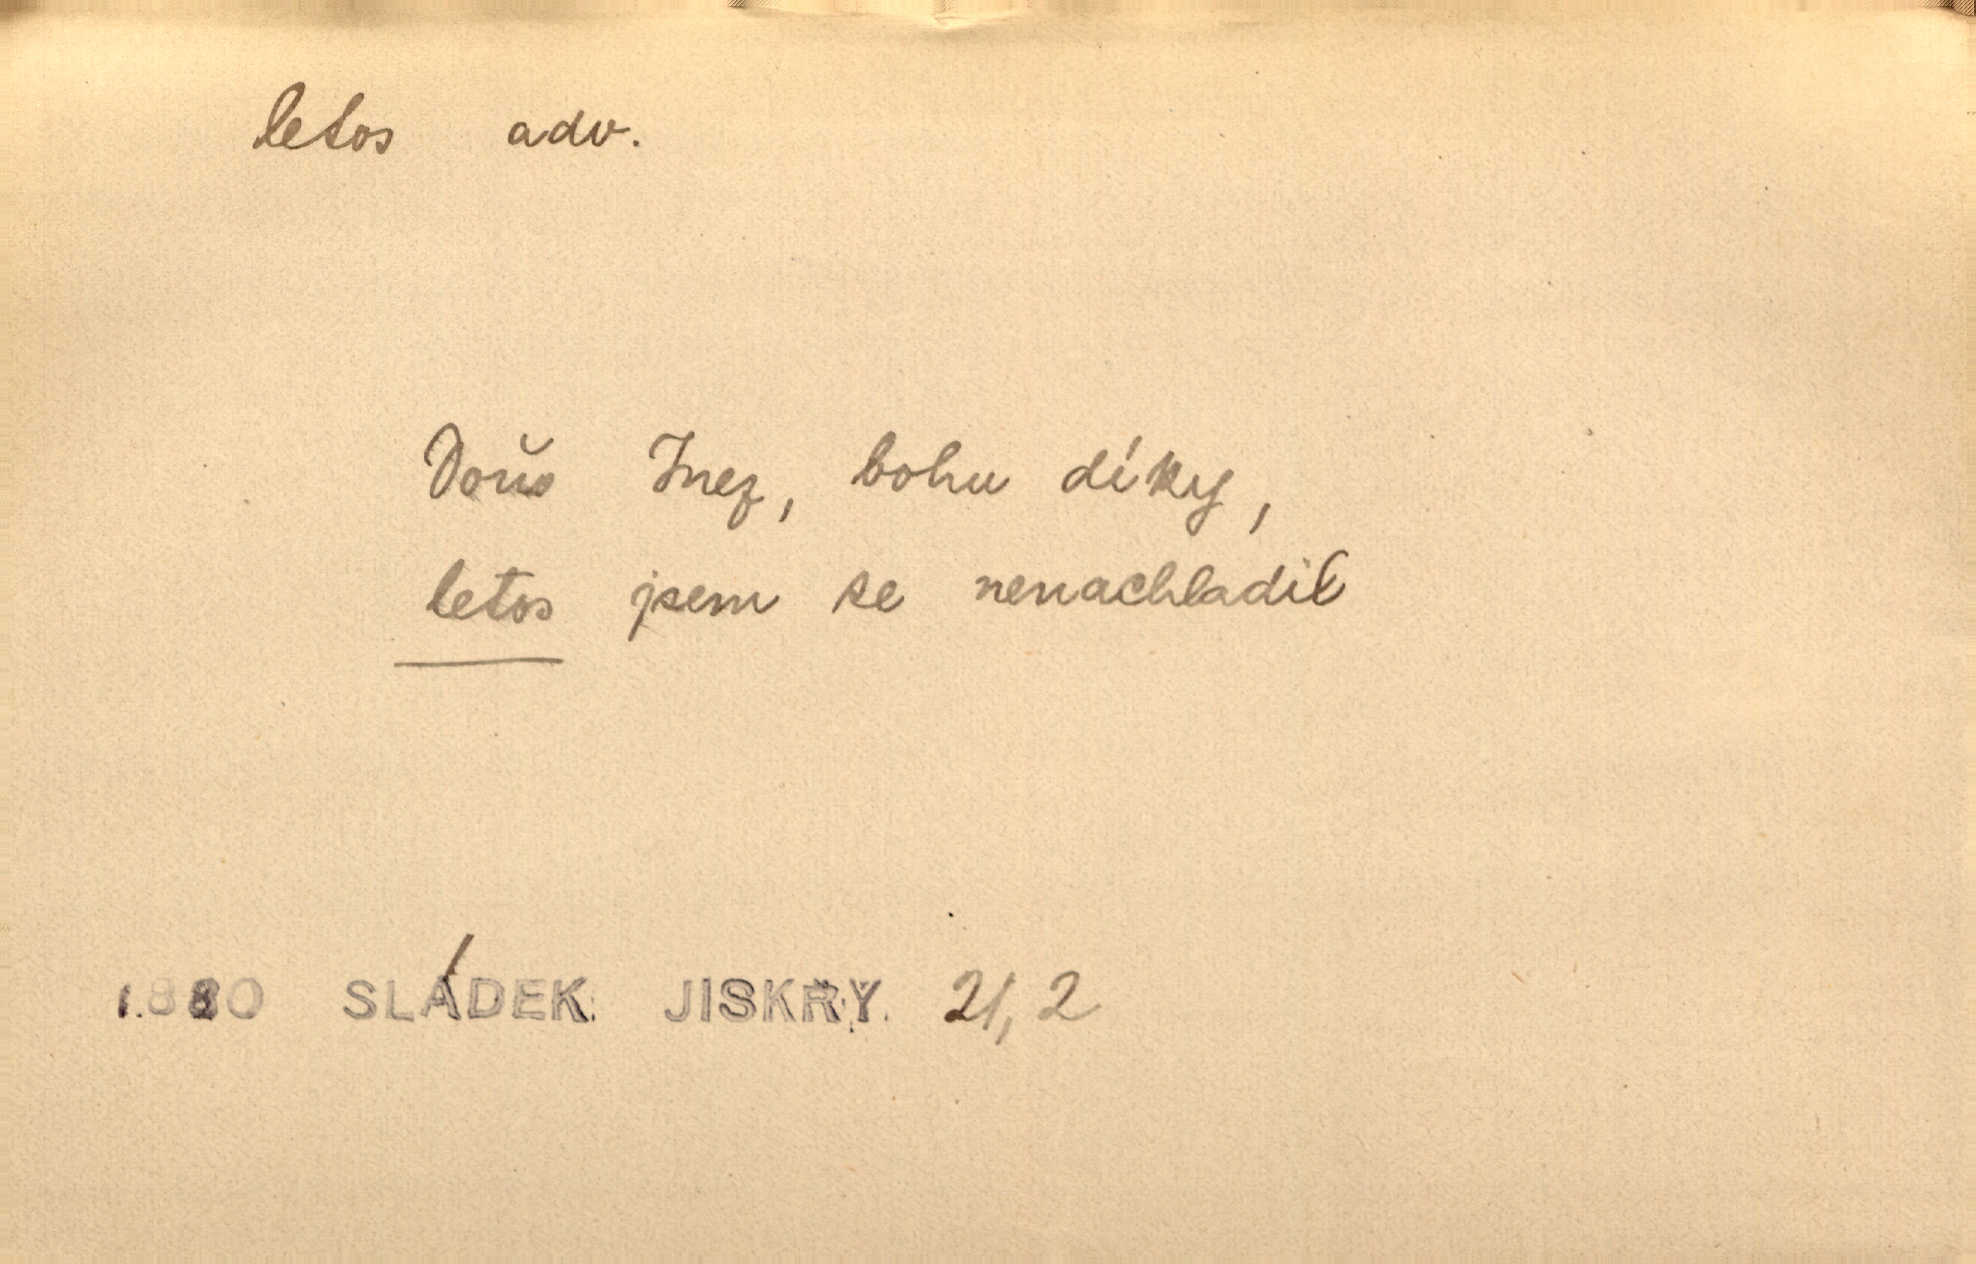 letos adv.
Doňo Inez, bohu díky,
letos jsem se nenachladil
1880 SLÁDEK: JISKRY. 21, 2